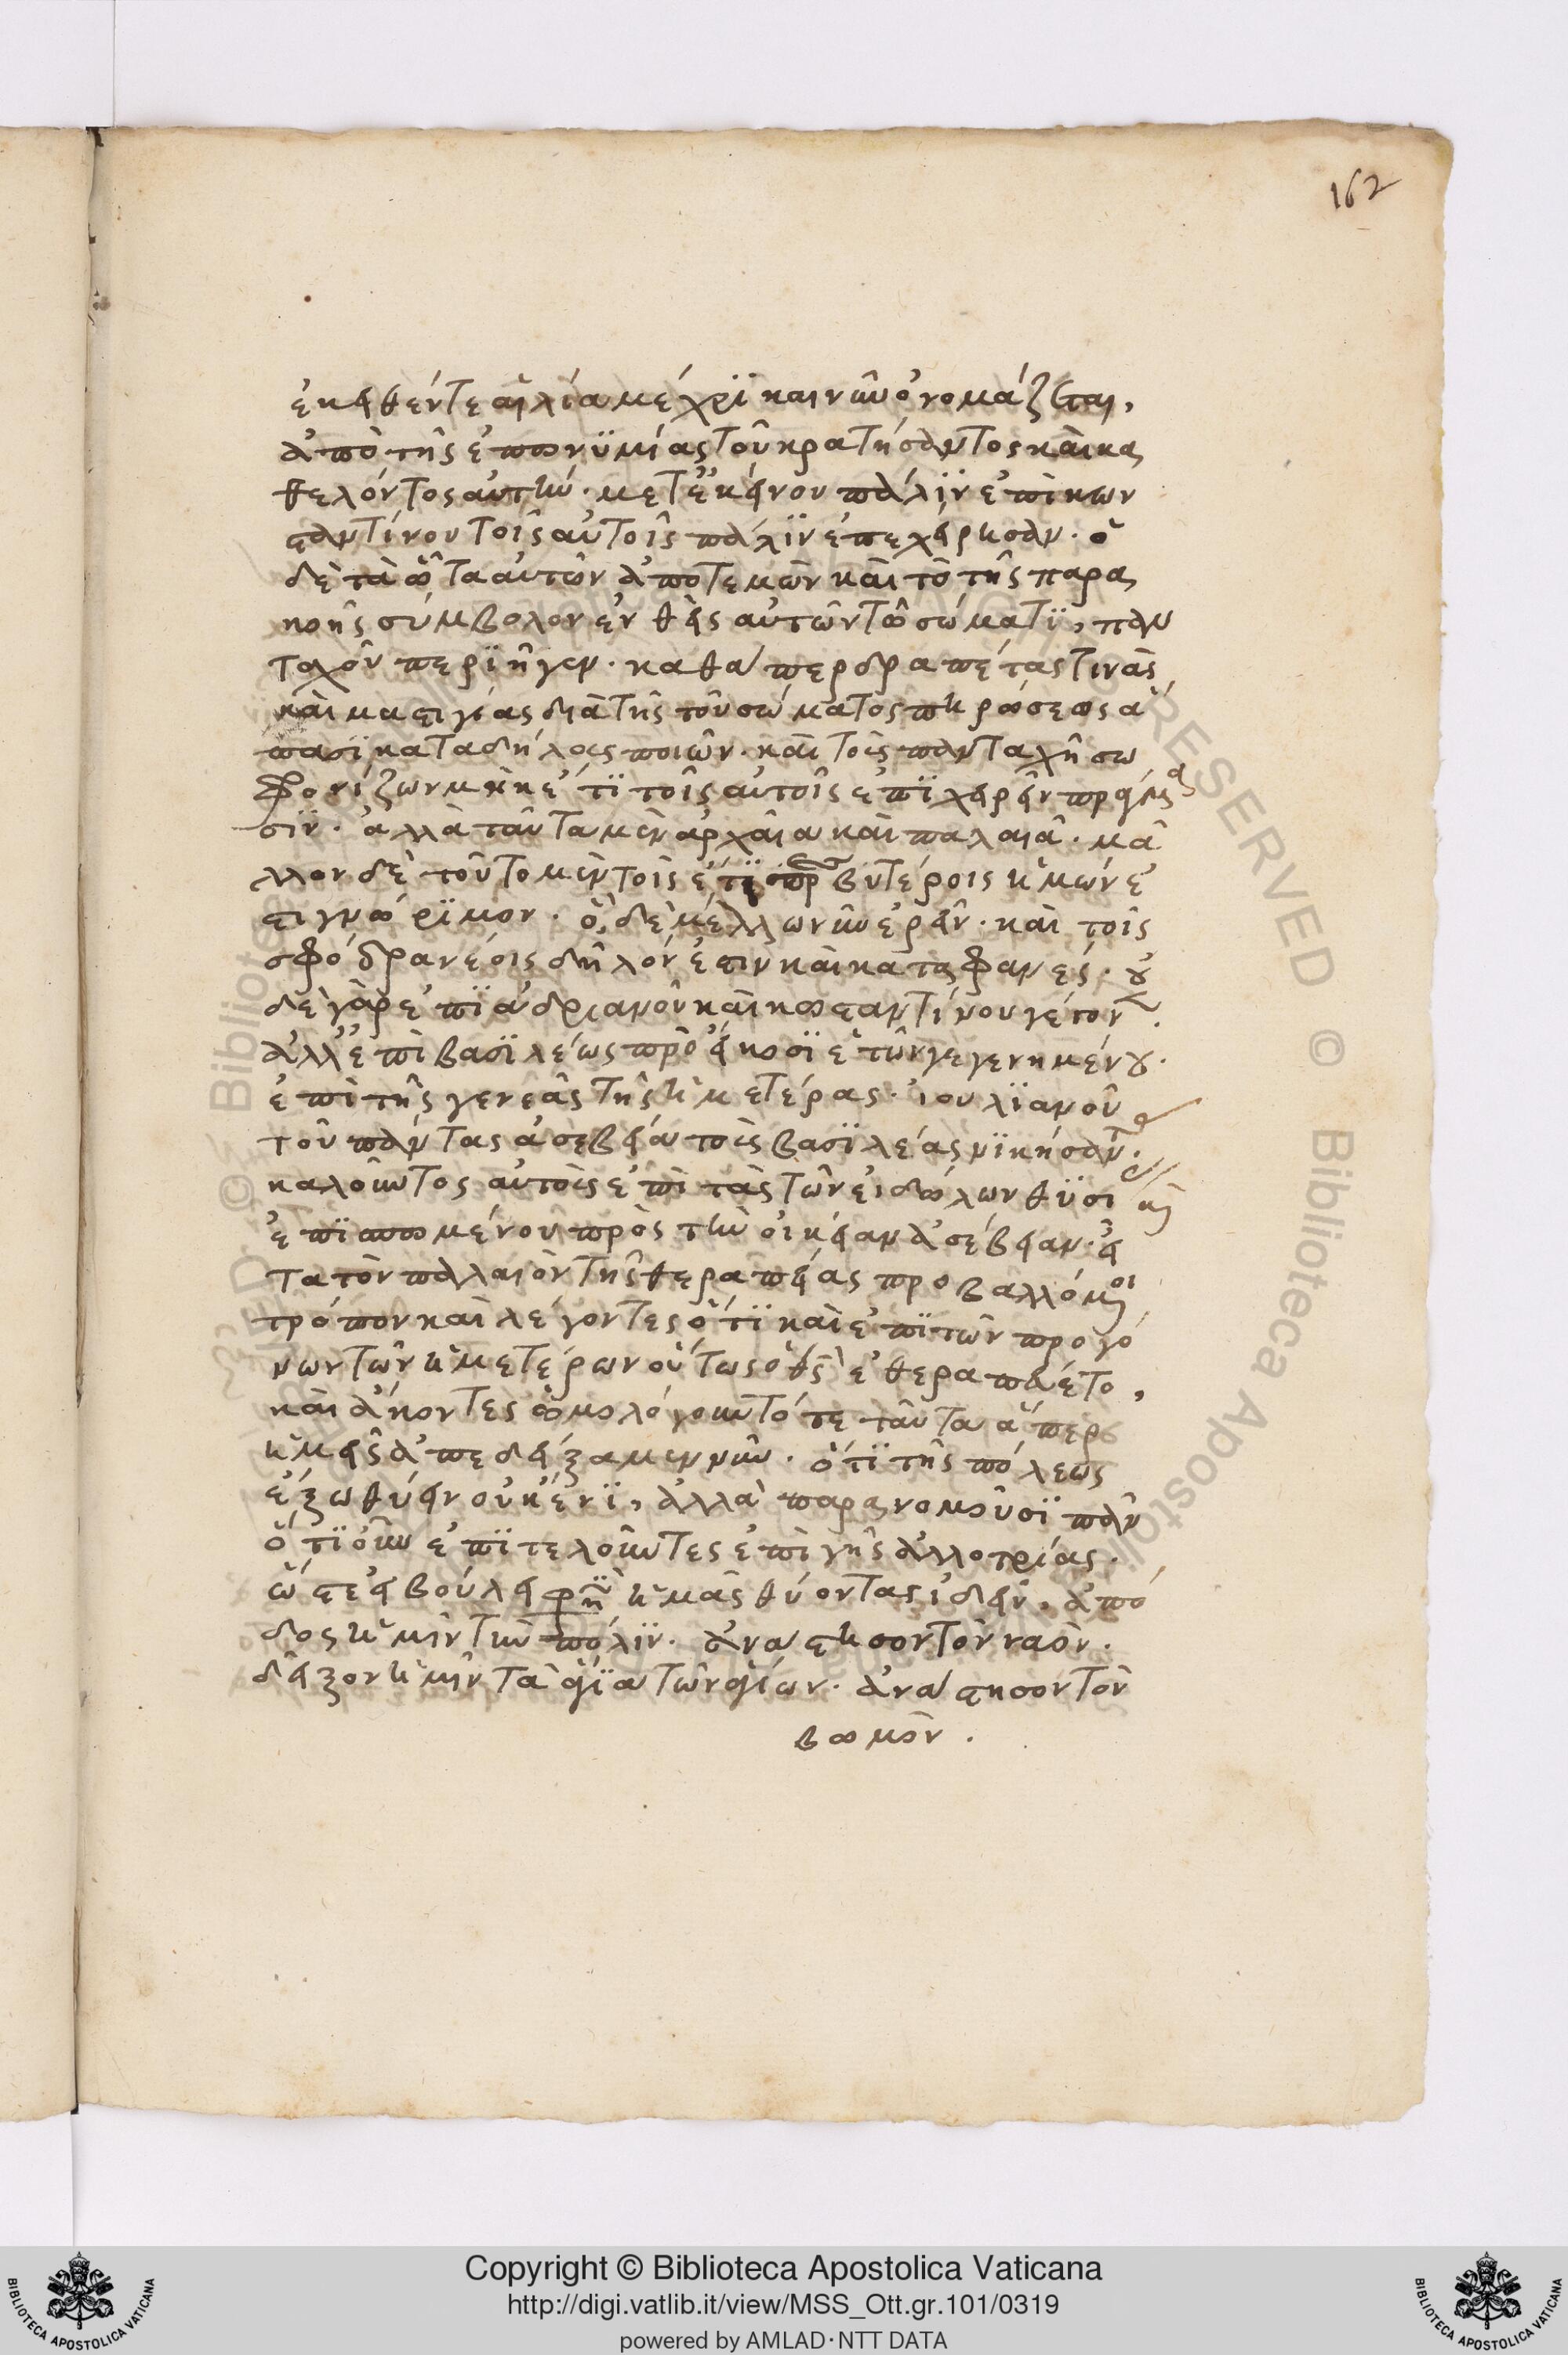 162
ἐκεῖθέν τε αἰλία μέχρϊ καὶ νῦν ὀνομάζεται,
ἀπὸ τῆς ἐπωνϋμίας τοῦ κρατήσαντος καὶ κα
θελόντος αὐτὴν· μετ' ἐκεῖνον πάλϊν ἐπὶ κων
σταντίνου τοῖς αὐτοῖς πάλϊν ἐπεχείρησαν· ὁ
δὲ τὰ ὦτα αὐτῶν ἀποτεμὼν καὶ τὸ τῆς παρα
κοῆς σύμβολον ἐνθεὶς αὐτῶν τῶ σώματϊ, παν
ταχοῦ περϊῆγεν· καθάπερ δραπέτας τινὰς
καὶ μαστιγίας διὰ τῆς τοῦ σώματος πηρώσεως ἅ
πασϊ καταδήλους ποιῶν· καὶ τοὺς πανταχῆ σω
φρονίζων μηκέτϊ τοῖς αὐτοῖς ἐπϊχειρεῖν πράγμα
σϊν· ἀλλὰ ταῦτα μὲν ἀρχαῖα καὶ παλαιά· μᾶ
λλον δὲ τοῦτο μὲν τοῖς ἔτϊ πρεσβυτέροις ἡμῶν ἐ
στι γνώρϊμον· ὃ δὲ μέλλω νῦν ἐρεῖν· καὶ τοῖς
σφόδρα νέοις δῆλόν ἐστιν καὶ καταφανές· οὐ
δὲ γὰρ ἐπϊ ἀδριανοῦ καὶ κωσταντίνου γέγον
ἀλλ' ἐπὶ βασϊλέως πρὸ εἴκοσϊ ἐτῶν γεγενημένου·
ἐπὶ τῆς γενεᾶς τῆς ἡμετέρας· ἰουλϊανοῦ
τοῦ πάντας ἀσεβείᾳ τοὺς βασϊλέας νϊκήσαντο
καλοῦντος αὐτοὺς ἐπὶ τὰς τῶν εἰδώλων θϋσί καὶ
ἐπϊσπωμένου πρὸς τὴν οἰκείαν ἀσέβειαν· εἶ
τα τὸν παλαιὸν τῆς θεραπείας προβαλλόμενοι
τρόπον καὶ λέγοντες ὅτϊ καὶ ἐπϊ τῶν προγό
νων τῶν ἡμετέρων οὕτως ὁ θς ἐθεραπεύετο,
καὶ ἄκοντες ὡμολόγουν τότε ταῦτα ἅπερ
ἡμεῖς ἀπεδείξαμεν νῦν· ὅτϊ τῆς πόλεως
ἔξω θύειν οὐκ ἔνϊ, ἀλλὰ παρανομοῦσϊ πᾶν
ὁτϊοῦν ἐπϊτελοῦντες ἐπὶ γῆς ἀλλοτρίας·
ὥστε εἰ βούλει φησὶν ἡμᾶς θύοντας ἰδεῖν, ἀπό
δος ἡμῖν τὴν πόλϊν· ἀνάστησον τὸν ναόν·
δεῖξον ἡμῖν τὰ ἅγϊα τῶν ἁγίων· ἀνάστησον τὸν
βωμόν·
Copyright © Biblioteca Apostolica Vaticana
http://digi.vatlib.it/view/MSS_Ott.gr.101/0319
powered by AMLAD·NTT DATA
BIBLIOTECA APOSTOLICA VATICANA
BIBLIOTECA APOSTOLICA VATICANA